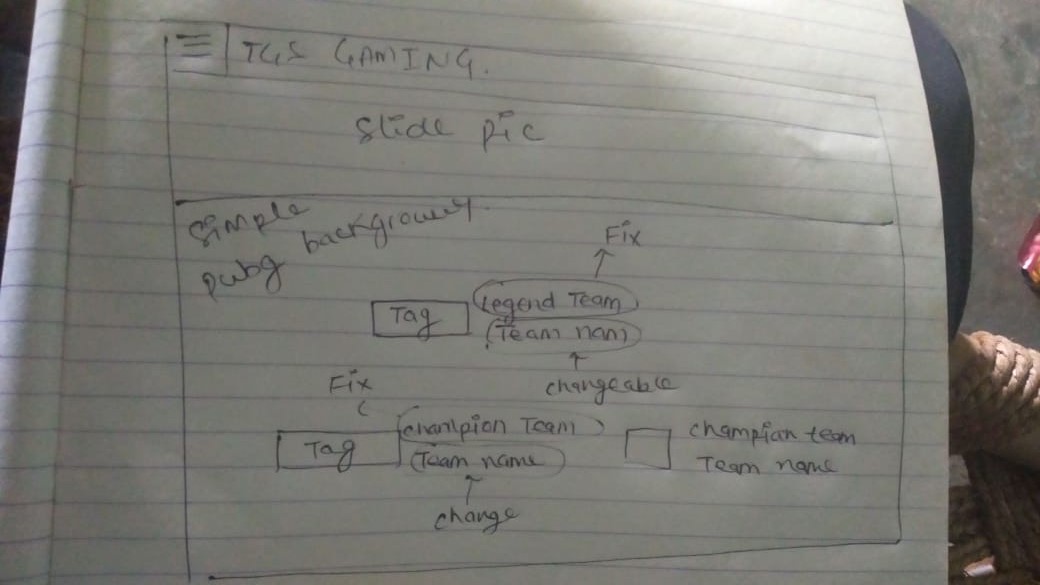 TGS GAMING.
Slide pic
Simple background.
pubg
Fix
Tag
Legend Team
Team nam
changeable
Fix
Tag
champion Team
Team name
change
champian team
Team name